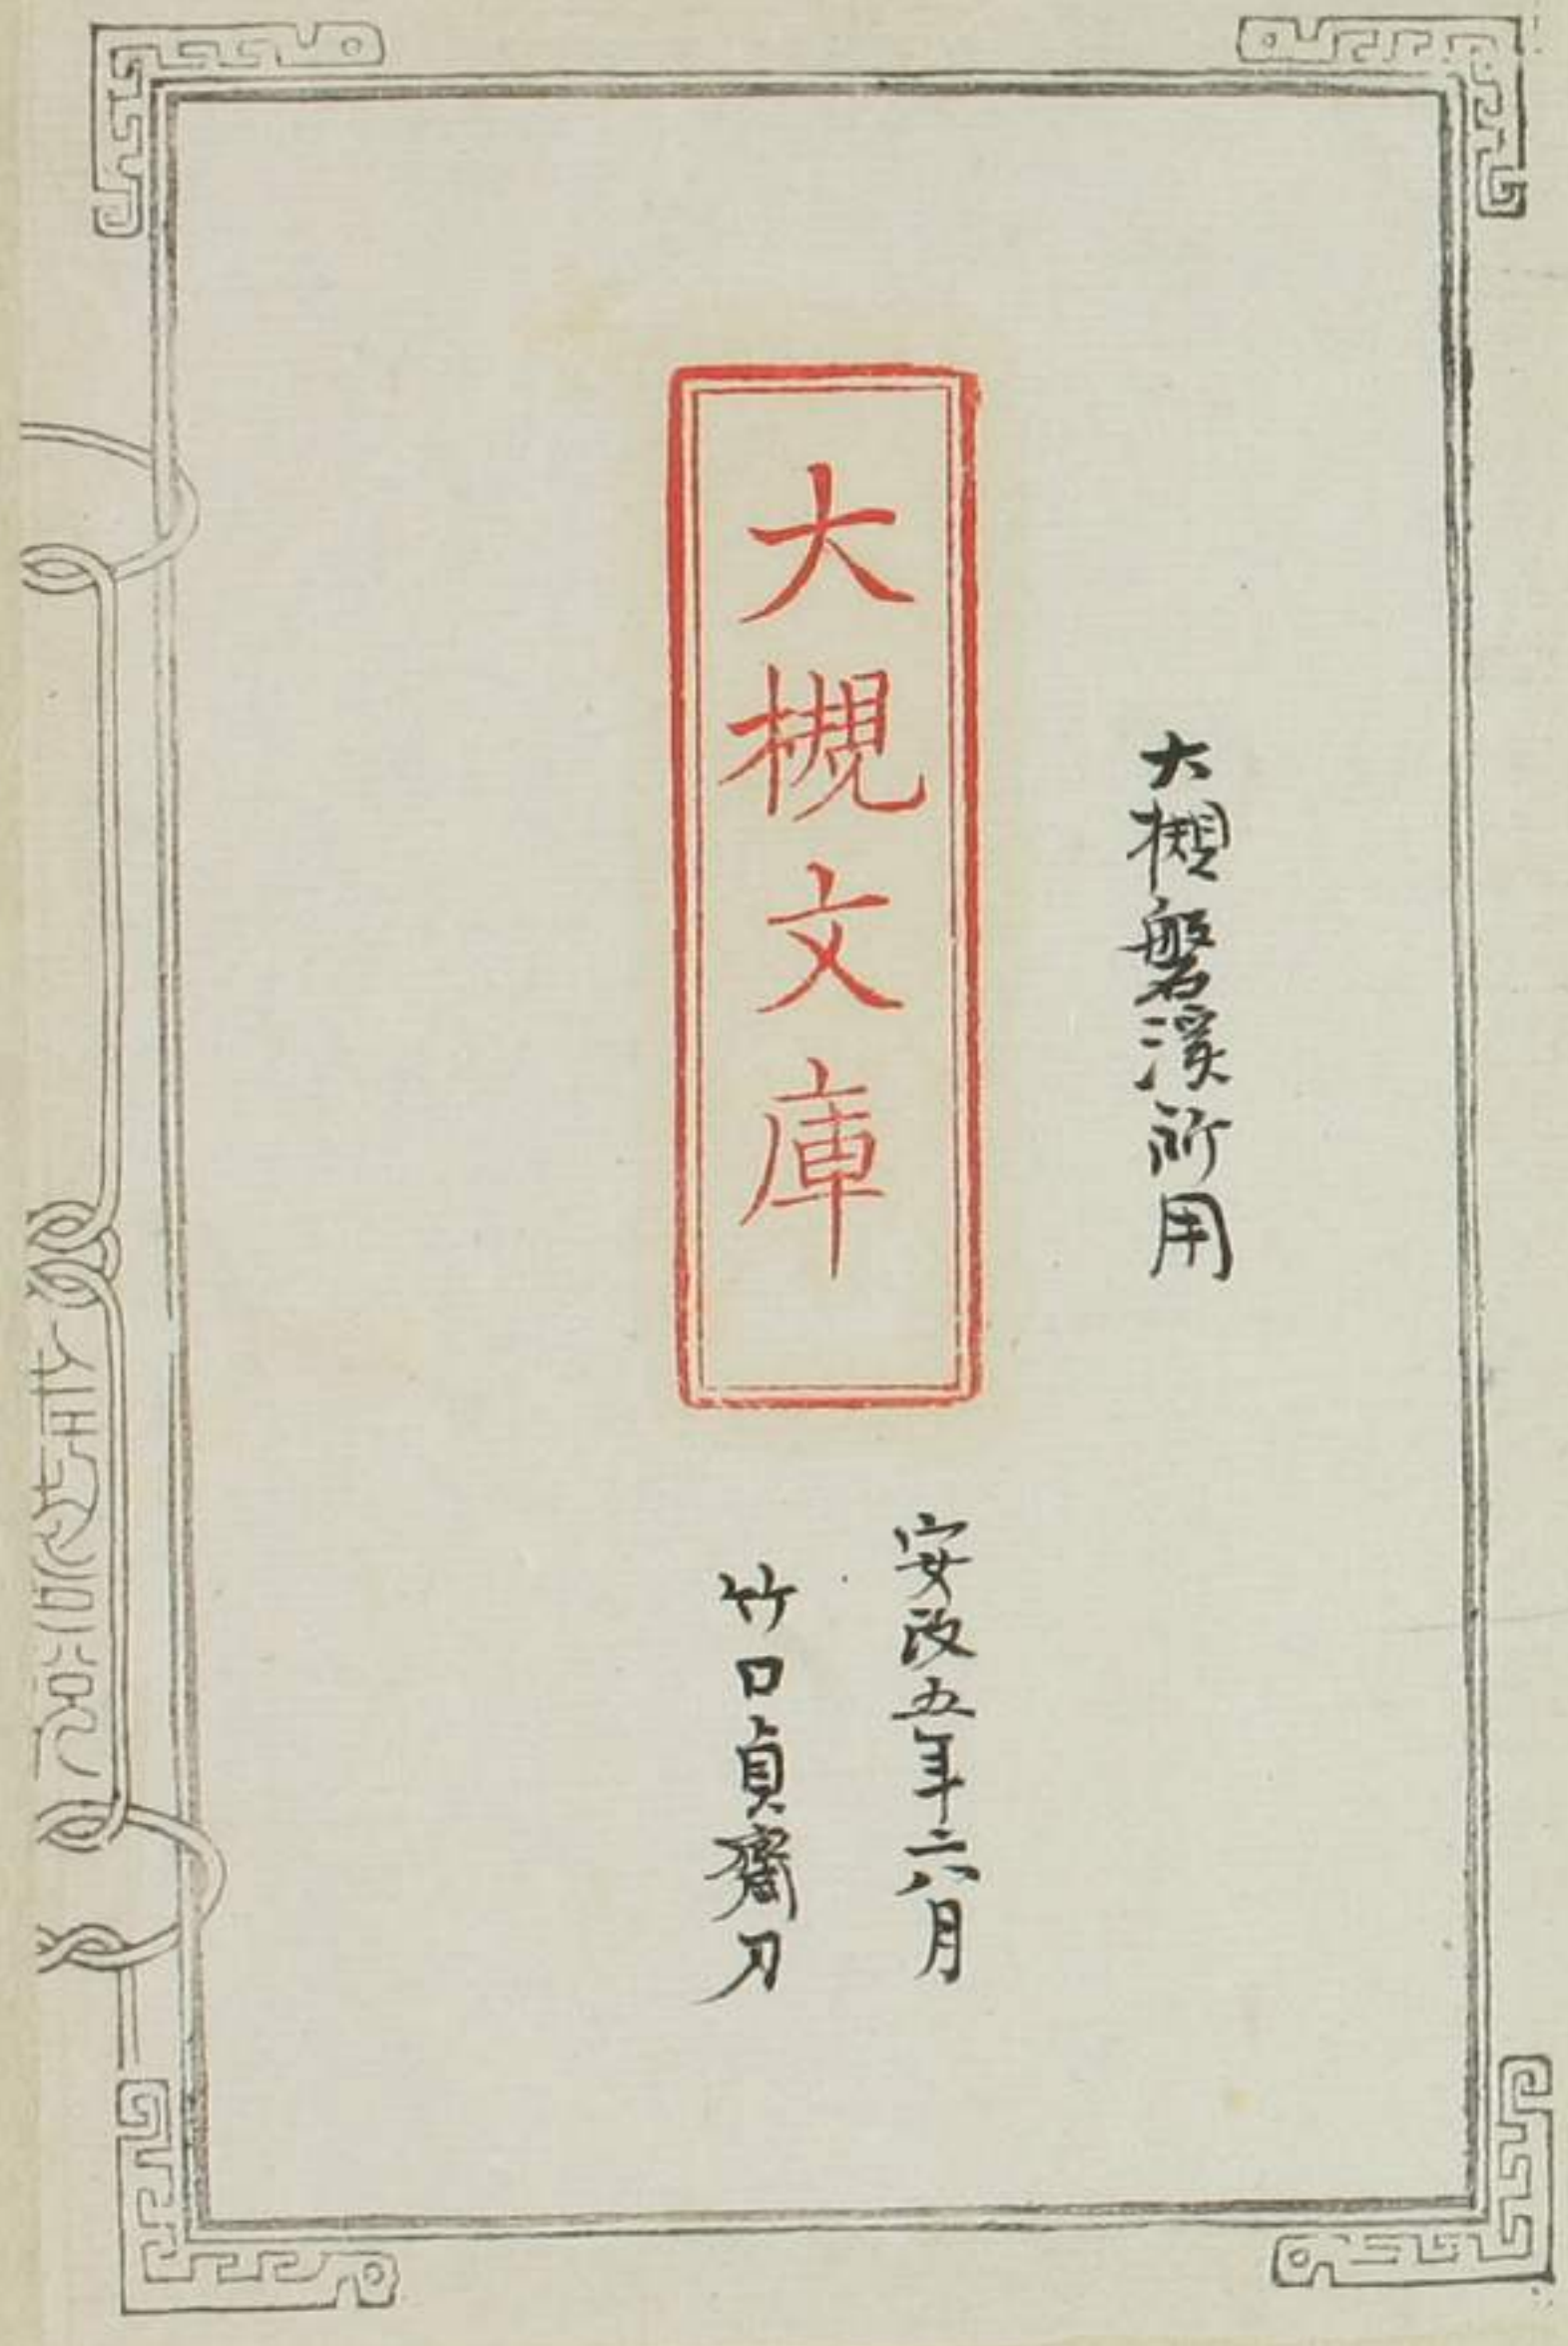 大槻磐溪所用
大槻文庫
安政五年六月
竹口貞齋刀